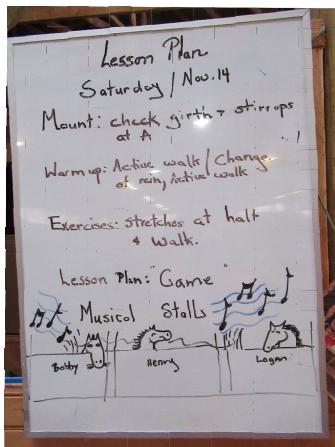 Lesson Plan
Saturday / Nov. 14
Mount: check girth + stirrups
at A
Warm up: Active walk / Change
of rein, Active walk
Exercises: stretches at halt
& walk.
Lesson Plan: "Game"
Musical Stalls
Bobby Henry Logan